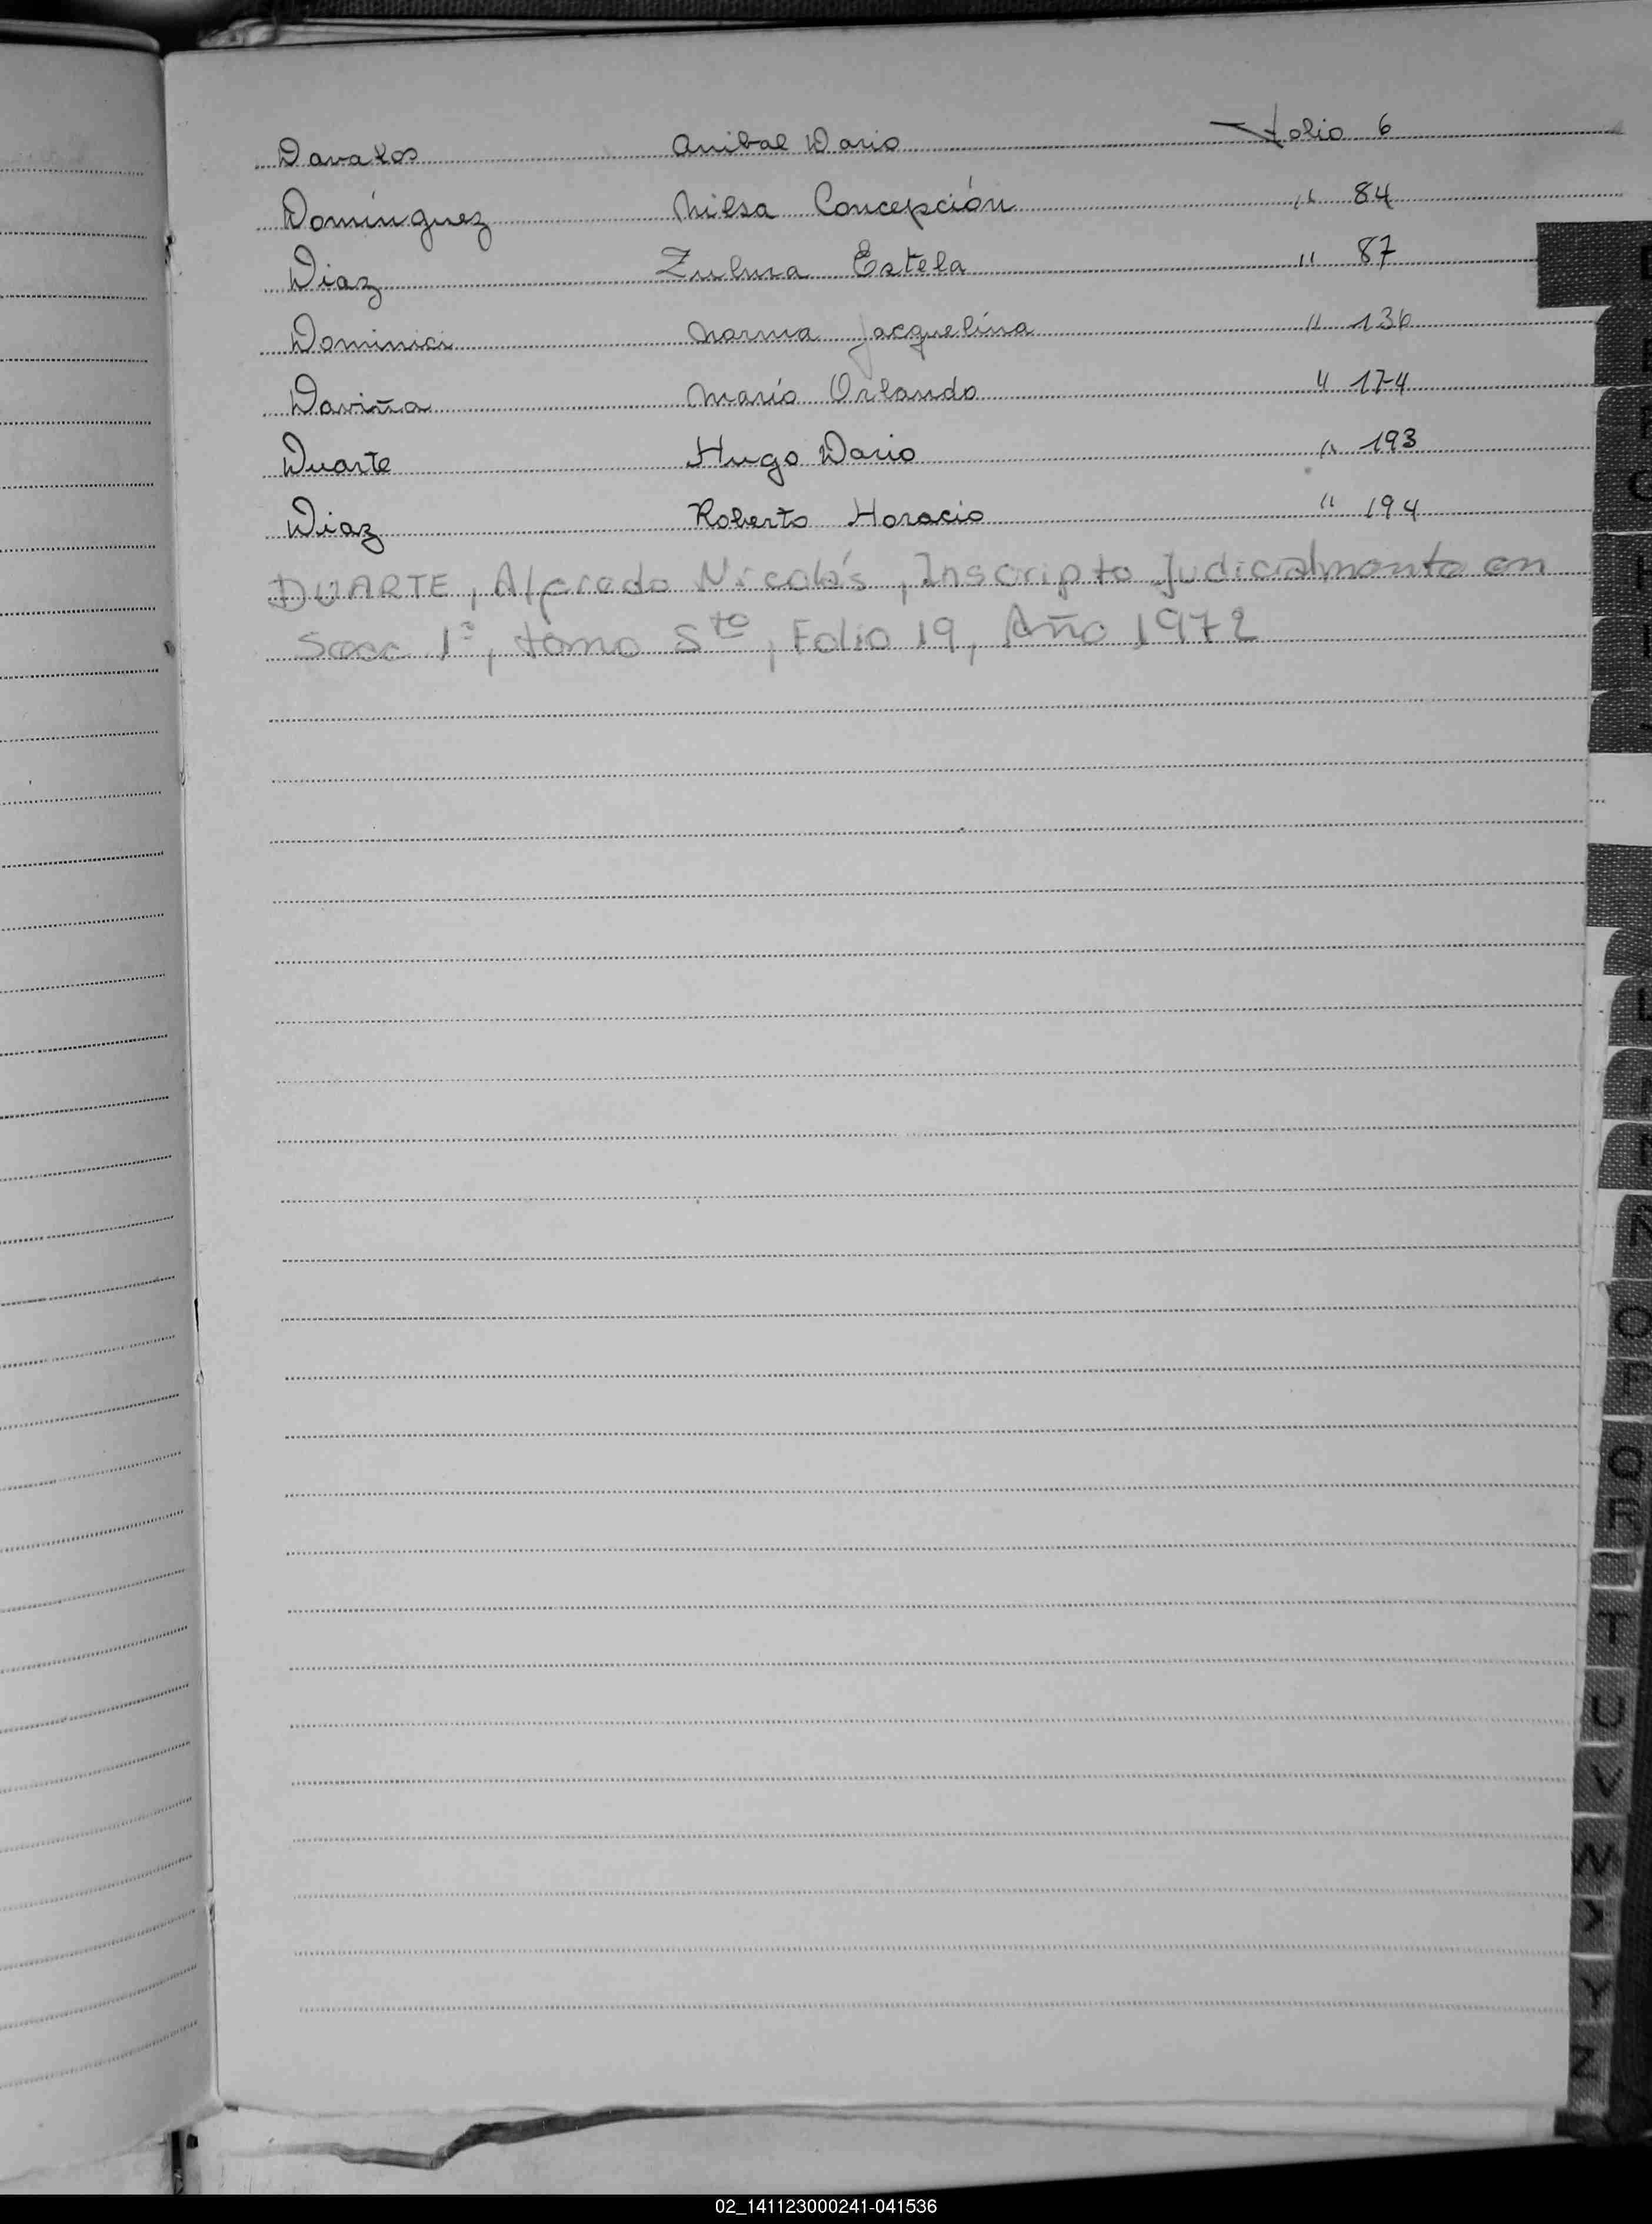 Davalos Anibal Dario Folio 6
Domínguez Nilsa Concepción " 84
Diaz Zulma Estela " 87
Dominici Norma Jacquelína " 136
Daviña Mario Orlando " 174
Duarte Hugo Dario " 193
Diaz Roberto Horacio " 194
DUARTE, Alfredo Nicolás, Inscripto Judicialmente en
Secc 1ª, tomo 5to, Folio 19, Año 1972
L
N
O
P
Q
R
T
U
V
W
Y
Z
02_141123000241-041536